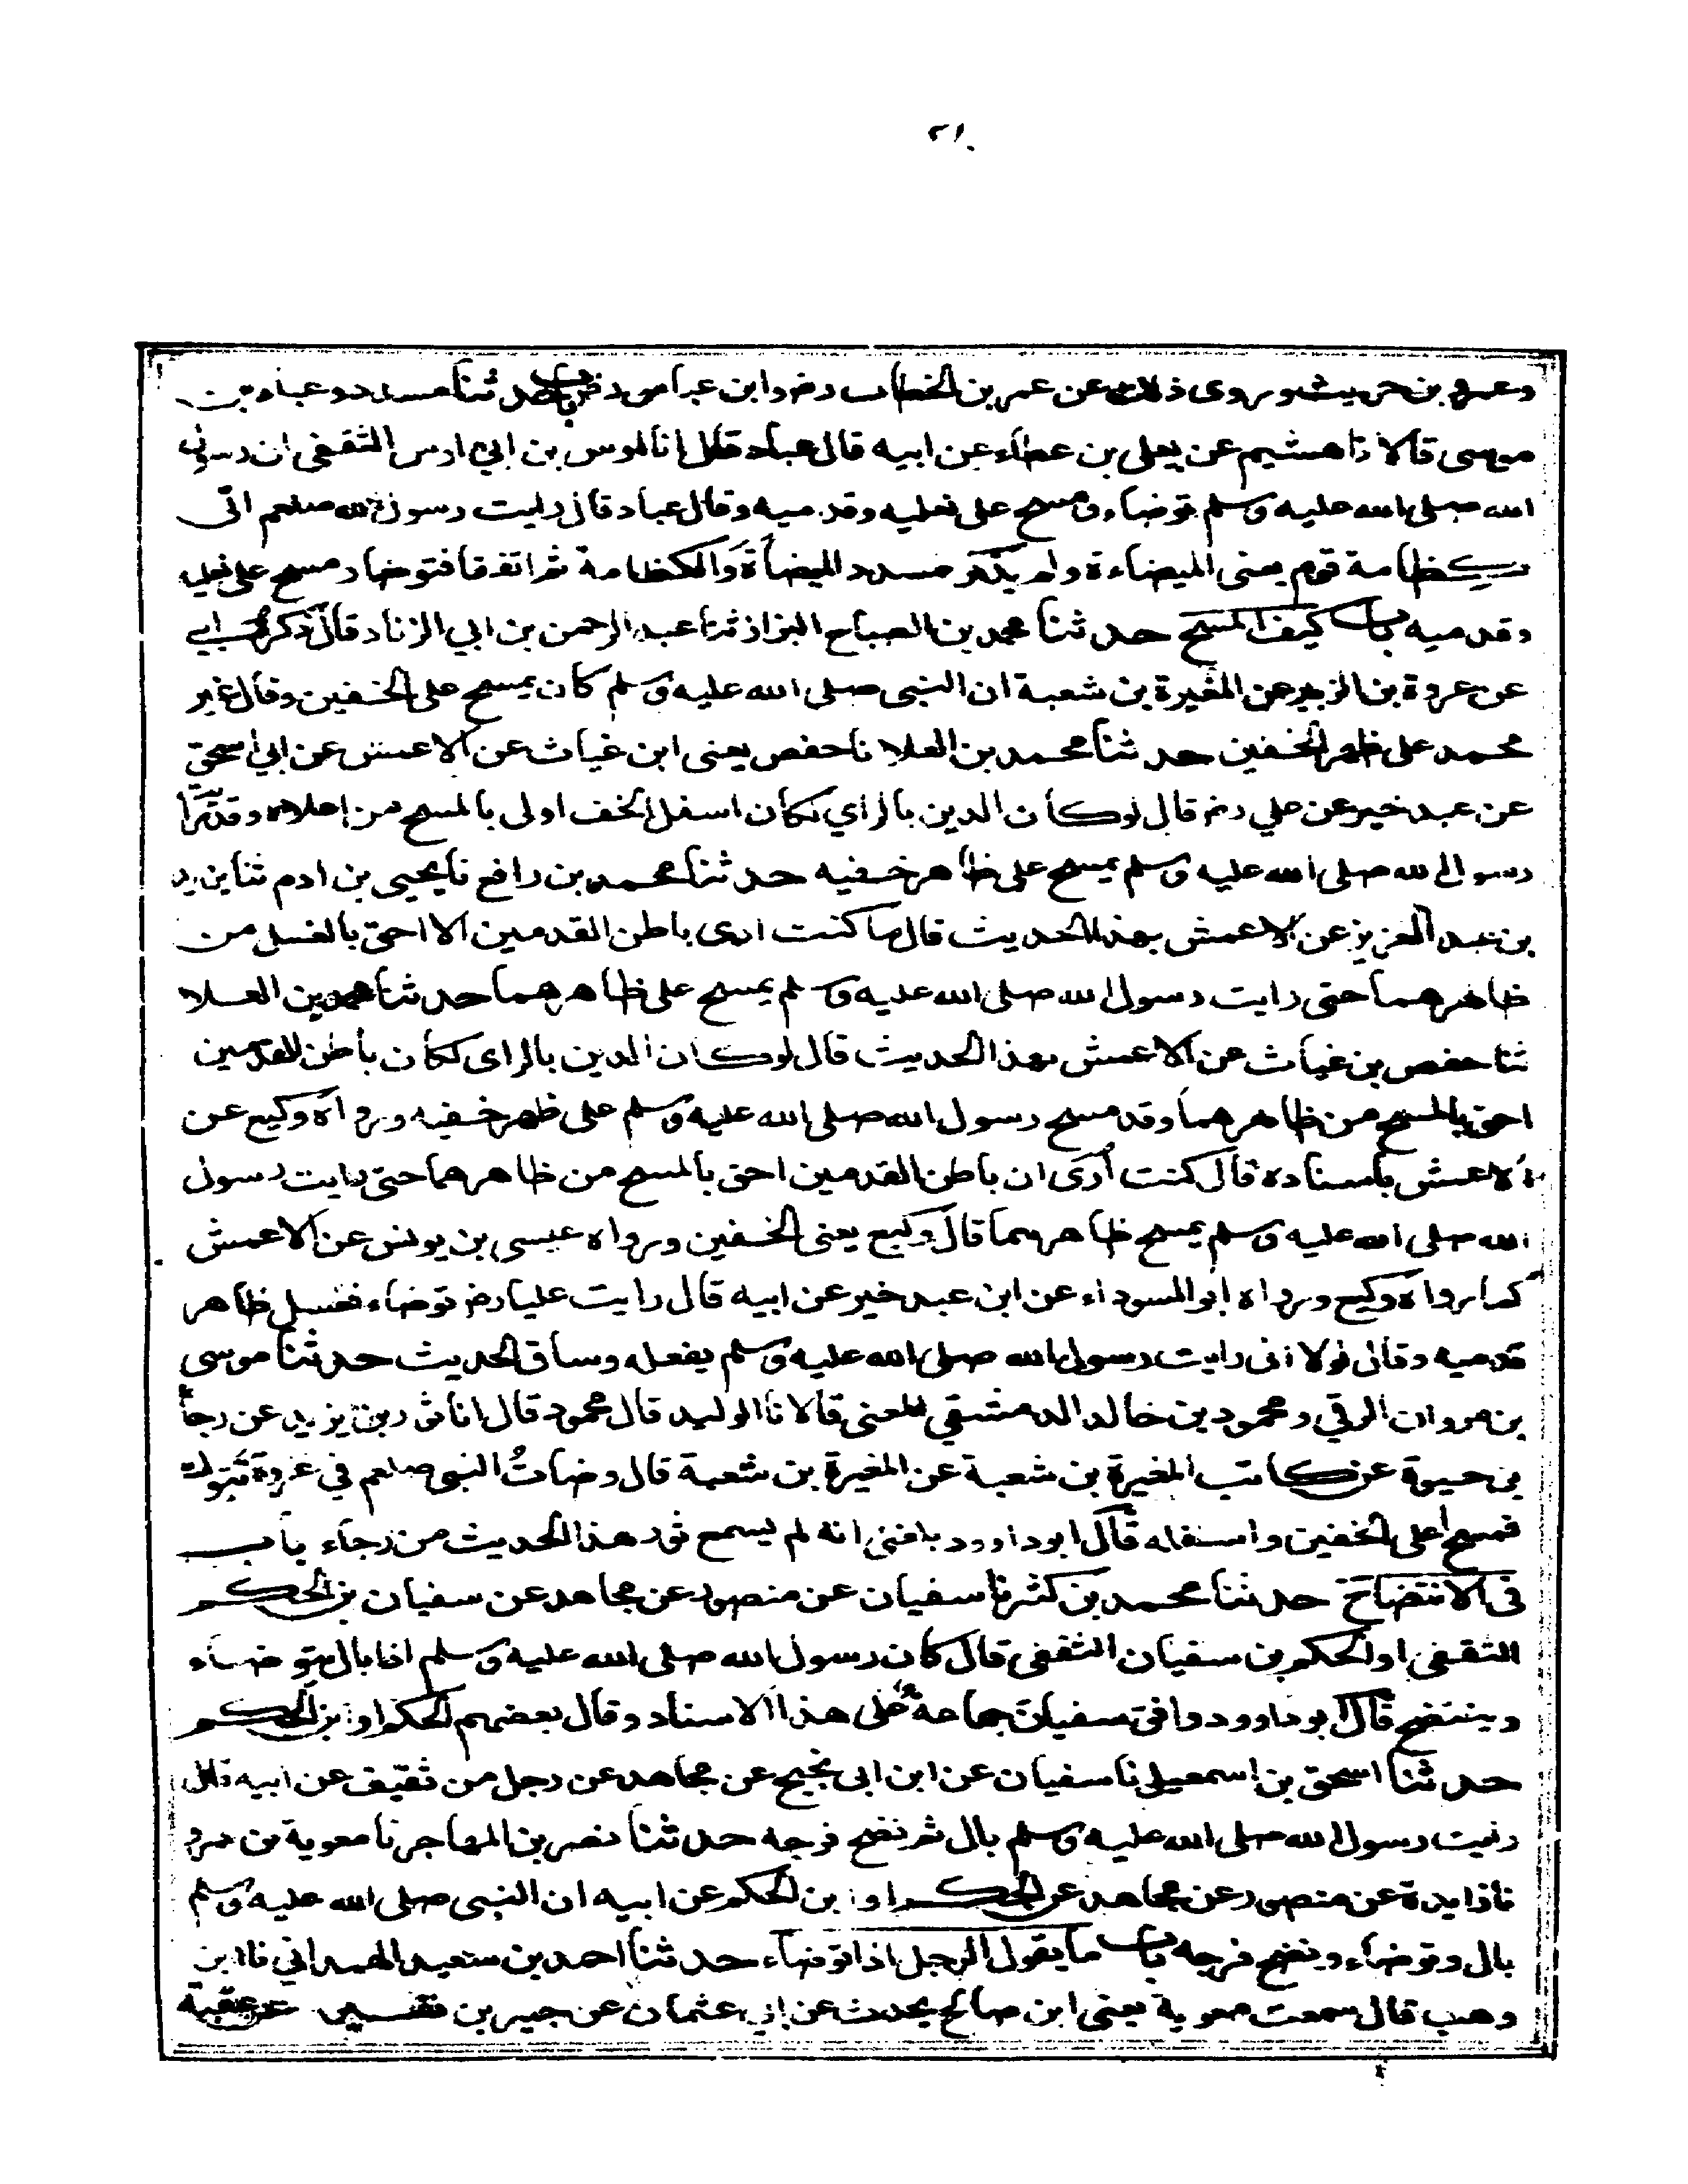 ٢١٠
وعمرو بن حريث وروى ذلك عن عمر بن الخطاب رض وابن عباس رض باب حدثنا مسدد وعباد بن
موسى قالا نا هشيم عن يعلى بن عطاء عن ابيه قال عباد قال انا اوس بن ابي اوس الثقفي ان رسول
الله صلى الله عليه وسلم توضاء ومسح على نعليه وقدميه وقال عباد قال رايت رسول الله صلعم اتى
كظامة قوم يعنى الميضاءة ولم يذكر مسدد الميضأة والكظامة ثم اتفقا فتوضا ومسح على نعليه
وقدميه باب كيف المسح حدثنا محمد بن الصباح البزاز ثنا عبد الرحمن بن ابي الزناد قال ذكره ابي
عن عروة بن الزبير عن المغيرة بن شعبة ان النبى صلى الله عليه وسلم كان يمسح على الخفين وقال غير
محمد على ظهر الخفين حدثنا محمد بن العلا نا حفص يعنى ابن غياث عن الاعمش عن ابي اسحق
عن عبد خير عن علي رض قال لوكان الدين بالراي لكان اسفل الخف اولى بالمسح من اعلاه وقد
رسول الله صلى الله عليه وسلم يمسح على ظاهر خفيه حدثنا محمد بن رافع نا يحيى بن ادم ثنا يزيد
بن عبد العزيز عن الاعمش بهذا الحديث قال ما كنت ارى باطن القدمين الا احق بالغسل من
ظاهرهما حتى رايت رسول الله صلى الله عليه وسلم يمسح على ظاهرهما حدثنا محمد بن العلا
ثنا حفص بن غياث عن الاعمش بهذا الحديث قال لوكان الدين بالراى لكان باطن القدمين
احق بالمسح من ظاهرهما وقد مسح رسول الله صلى الله عليه وسلم على ظهر خفيه ورواه وكيع عن
الاعمش باسناده قال كنت أرى ان باطن القدمين احق بالمسح من ظاهرهما حتى رايت رسول
الله صلى الله عليه وسلم يمسح ظاهرهما قال وكيع يعنى الخفين ورواه عيسى بن يونس عن الاعمش
كما رواه وكيع ورواه ابو السوداء عن ابن عبد خير عن ابيه قال رايت عليا رض توضاء فغسل ظاهر
قدميه وقال لولا انى رايت رسول الله صلى الله عليه وسلم يفعله وساق الحديث حدثنا موسى
بن مروان الرقي ومحمود بن خالد الدمشقي المعنى قالا نا الوليد قال محمود قال انا ثور بن يزيد عن رجأ
بن حيوة عن كاتب المغيرة بن شعبة عن المغيرة بن شعبة قال وضاتُ النبى صلعم في غزوة تبوك
فمسح اعلى الخفين واسفله قال ابو داوود بلغنى انه لم يسمع ثور هذا الحديث من رجاء باب
فى الانتضاح حدثنا محمد بن كثير نا سفيان عن منصور عن مجاهد عن سفيان بن الحكم
الثقفى او الحكم بن سفيان الثقفى قال كان رسول الله صلى الله عليه وسلم اذا بال يتوضاء
وينتضح قال ابو داوود وافق سفيان جماعة على هذا الاسناد وقال بعضهم الحكم او ابن الحكم
حدثنا اسحق بن اسمعيل نا سفيان عن ابن ابى نجيح عن مجاهد عن رجل من ثقيف عن ابيه قال
رئيت رسول الله صلى الله عليه وسلم بال ثم نضح فرجه حدثنا نصر بن المهاجر نا معوية بن عمرو
نا زايدة عن منصور عن مجاهد عن الحكم او ابن الحكم عن ابيه ان النبى صلى الله عليه وسلم
بال وتوضاء ونضح فرجه باب ما يقول الرجل اذا توضاء حدثنا احمد بن سعيد الهمداني نا ابن
وهب قال سمعت معوية يعنى ابن صالح يحدث عن ابي عثمان عن جبير بن نفير عن عقبة